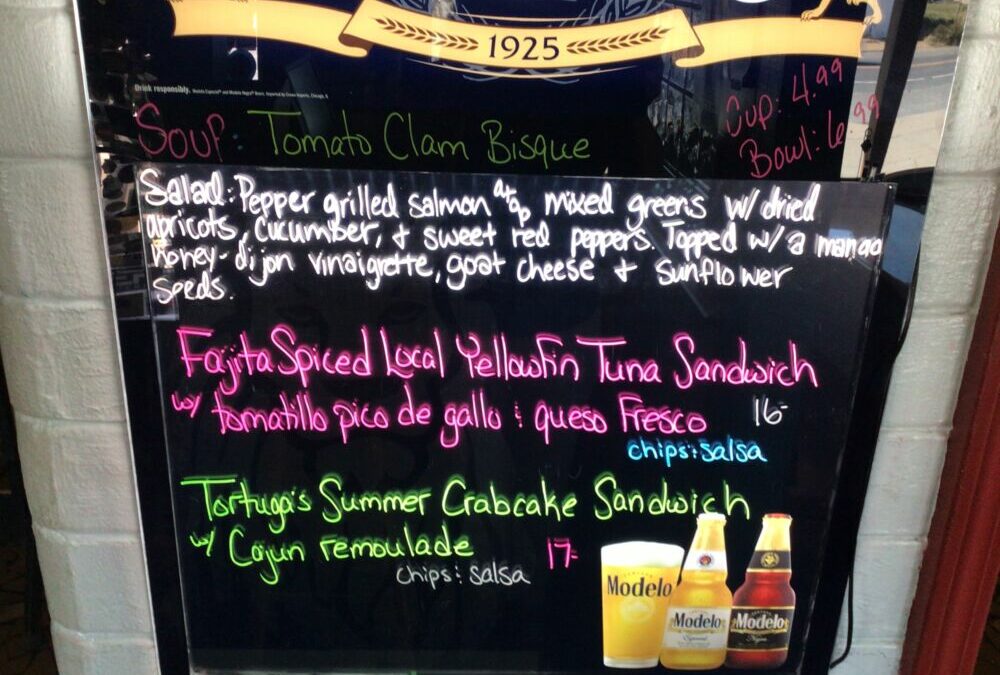 1925
Drink responsibly. Modelo Especial® and Modelo Negra® Beers. Imported by Crown Imports, Chicago, IL
Soup: Tomato Clam Bisque
Cup: 4.99
Bowl: 6.99
Salad: Pepper grilled salmon atop mixed greens w/ dried
apricots, cucumber, + sweet red peppers. Topped w/ a mango
honey-dijon vinaigrette, goat cheese + sunflower
seeds.
Fajita Spiced Local Yellowfin Tuna Sandwich
w/ tomatillo pico de gallo & queso Fresco 16-
chips & salsa
Tortuga's Summer Crabcake Sandwich
w/ Cajun remoulade 17-
chips & salsa
Modelo
Modelo
Especial
Modelo